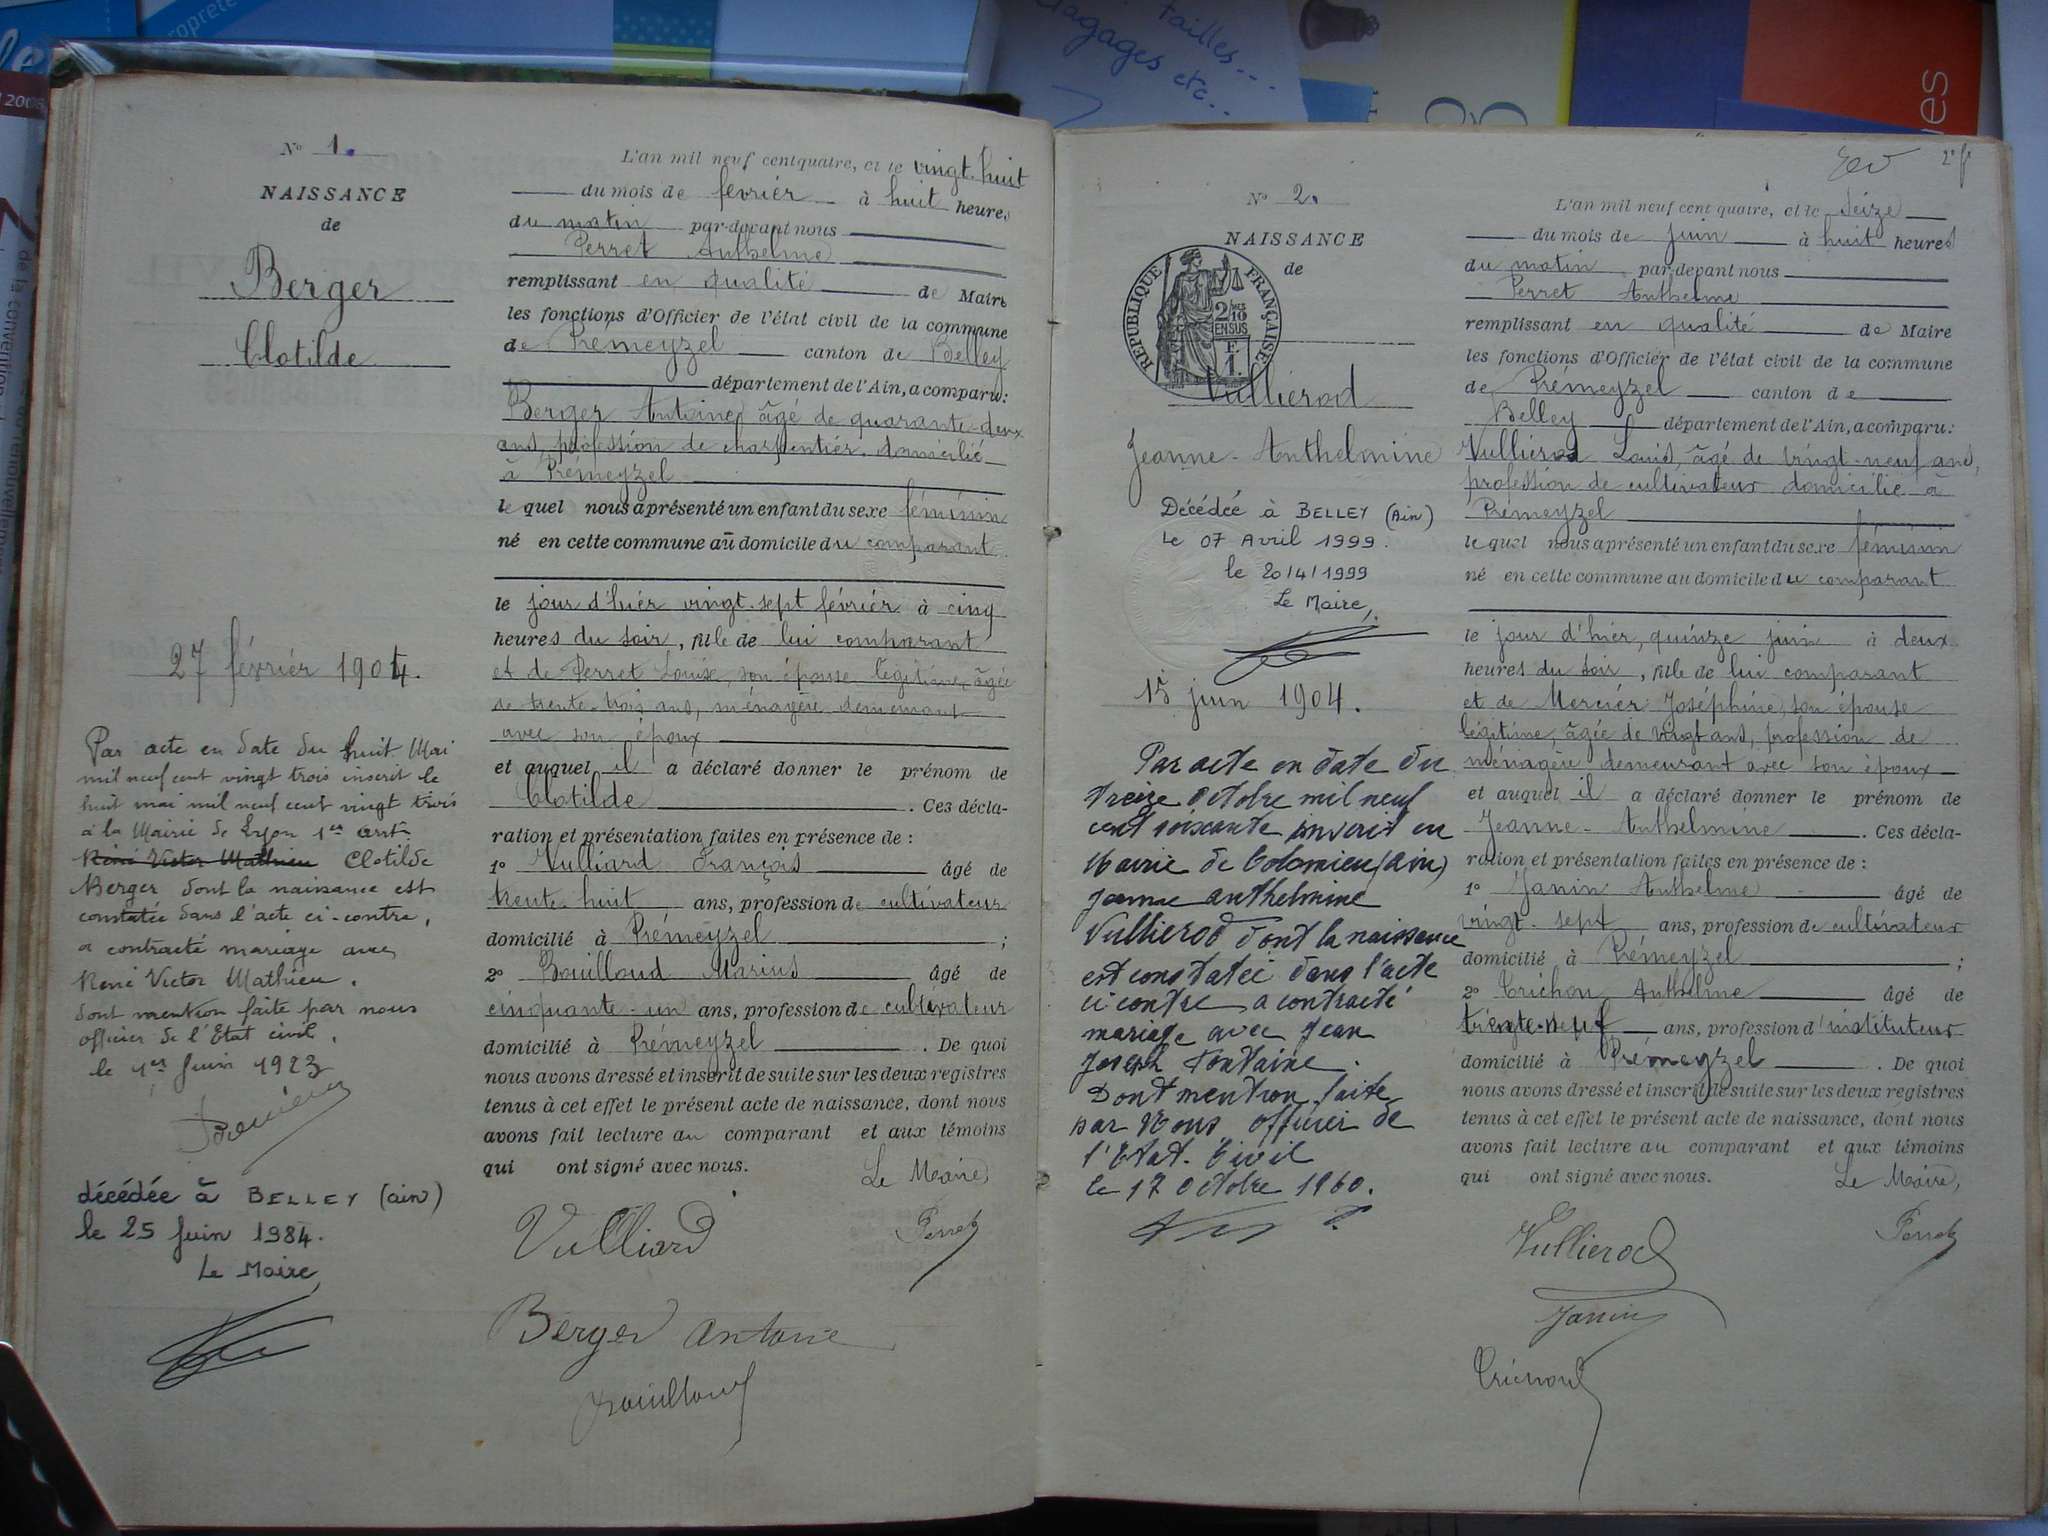 tailles...
élagages etc...
2008
N° 1.
NAISSANCE
de
Berger
Clotilde
27 février 1904.
Par acte en date du huit Mai
mil neuf cent vingt trois inscrit le
huit mai mil neuf cent vingt trois
à la Mairie de Lyon 1er arrt
René Victor Mathieu Clotilde
Berger dont la naissance est
constatée dans l'acte ci-contre,
a contracté mariage avec
René Victor Mathieu.
dont mention faite par nous
officier de l'Etat civil.
le 1er Juin 1923
décédée à BELLEY (ain)
le 25 Juin 1984.
Le Maire,
L'an mil neuf cent quatre, et le vingt-huit
du mois de février à huit heures
du matin par-devant nous
Perret Anthelme
remplissant en qualité de Maire
les fonctions d'Officier de l'état civil de la commune
de Prémeyzel canton de Belley
département de l'Ain, a comparu:
Berger Antoine âgé de quarante-deux
ans, profession de charpentier domicilié
à Prémeyzel
lequel nous a présenté un enfant du sexe féminin
né en cette commune au domicile du comparant
le jour d'hier vingt-sept février à cinq
heures du soir, fille de lui comparant
et de Perret Louise, son épouse légitime, âgée
de trente-trois ans, ménagère demeurant
avec son époux
et auquel il a déclaré donner le prénom de
Clotilde. Ces décla-
ration et présentation faites en présence de :
1° Vulliard François âgé de
trente-huit ans, profession de cultivateur
domicilié à Prémeyzel ;
2° Bouilloud Marius âgé de
cinquante-un ans, profession de cultivateur
domicilié à Prémeyzel . De quoi
nous avons dressé et inscrit de suite sur les deux registres
tenus à cet effet le présent acte de naissance, dont nous
avons fait lecture au comparant et aux témoins
qui ont signé avec nous.
Le Maire
Vulliard
Perret
Berger Antoine
Bouilloud
2e f
N° 2.
NAISSANCE
de
RÉPUBLIQUE FRANÇAISE
2/10 EN SUS
F. 1.
Vullierod
Jeanne-Anthelmine
Décédée à BELLEY (Ain)
Le 07 Avril 1999.
le 20/4/1999
Le Maire,
15 juin 1904.
Par acte en date du
treize Octobre mil neuf
cent soixante inscrit en
Mairie de Colomieu (Ain)
Jeanne anthelmine
Vullierod dont la naissance
est constatée dans l'acte
ci contre a contracté
mariage avec Jean
Joseph Fontaine.
Dont mention faite
par Nous Officier de
l'Etat. Civil
le 17 Octobre 1960.
L'an mil neuf cent quatre, et le Seize
du mois de Juin à huit heures
du matin par-devant nous
Perret Anthelme
remplissant en qualité de Maire
les fonctions d'Officier de l'état civil de la commune
de Prémeyzel canton de
Belley département de l'Ain, a comparu:
Vullierod Louis, âgé de vingt-neuf ans,
profession de cultivateur domicilié à
Prémeyzel
lequel nous a présenté un enfant du sexe féminin
né en cette commune au domicile du comparant
le jour d'hier, quinze juin à deux
heures du soir, fille de lui comparant
et de Mercier Joséphine, son épouse
légitime, âgée de vingt ans, profession de
ménagère demeurant avec son époux
et auquel il a déclaré donner le prénom de
Jeanne-Anthelmine . Ces décla-
ration et présentation faites en présence de :
1° Janin Anthelme âgé de
vingt-sept ans, profession de cultivateur
domicilié à Prémeyzel ;
2° Trichon Anthelme âgé de
trente-neuf ans, profession d'instituteur
domicilié à Prémeyzel . De quoi
nous avons dressé et inscrit de suite sur les deux registres
tenus à cet effet le présent acte de naissance, dont nous
avons fait lecture au comparant et aux témoins
qui ont signé avec nous.
Le Maire,
Vullierod
Perret
Janin